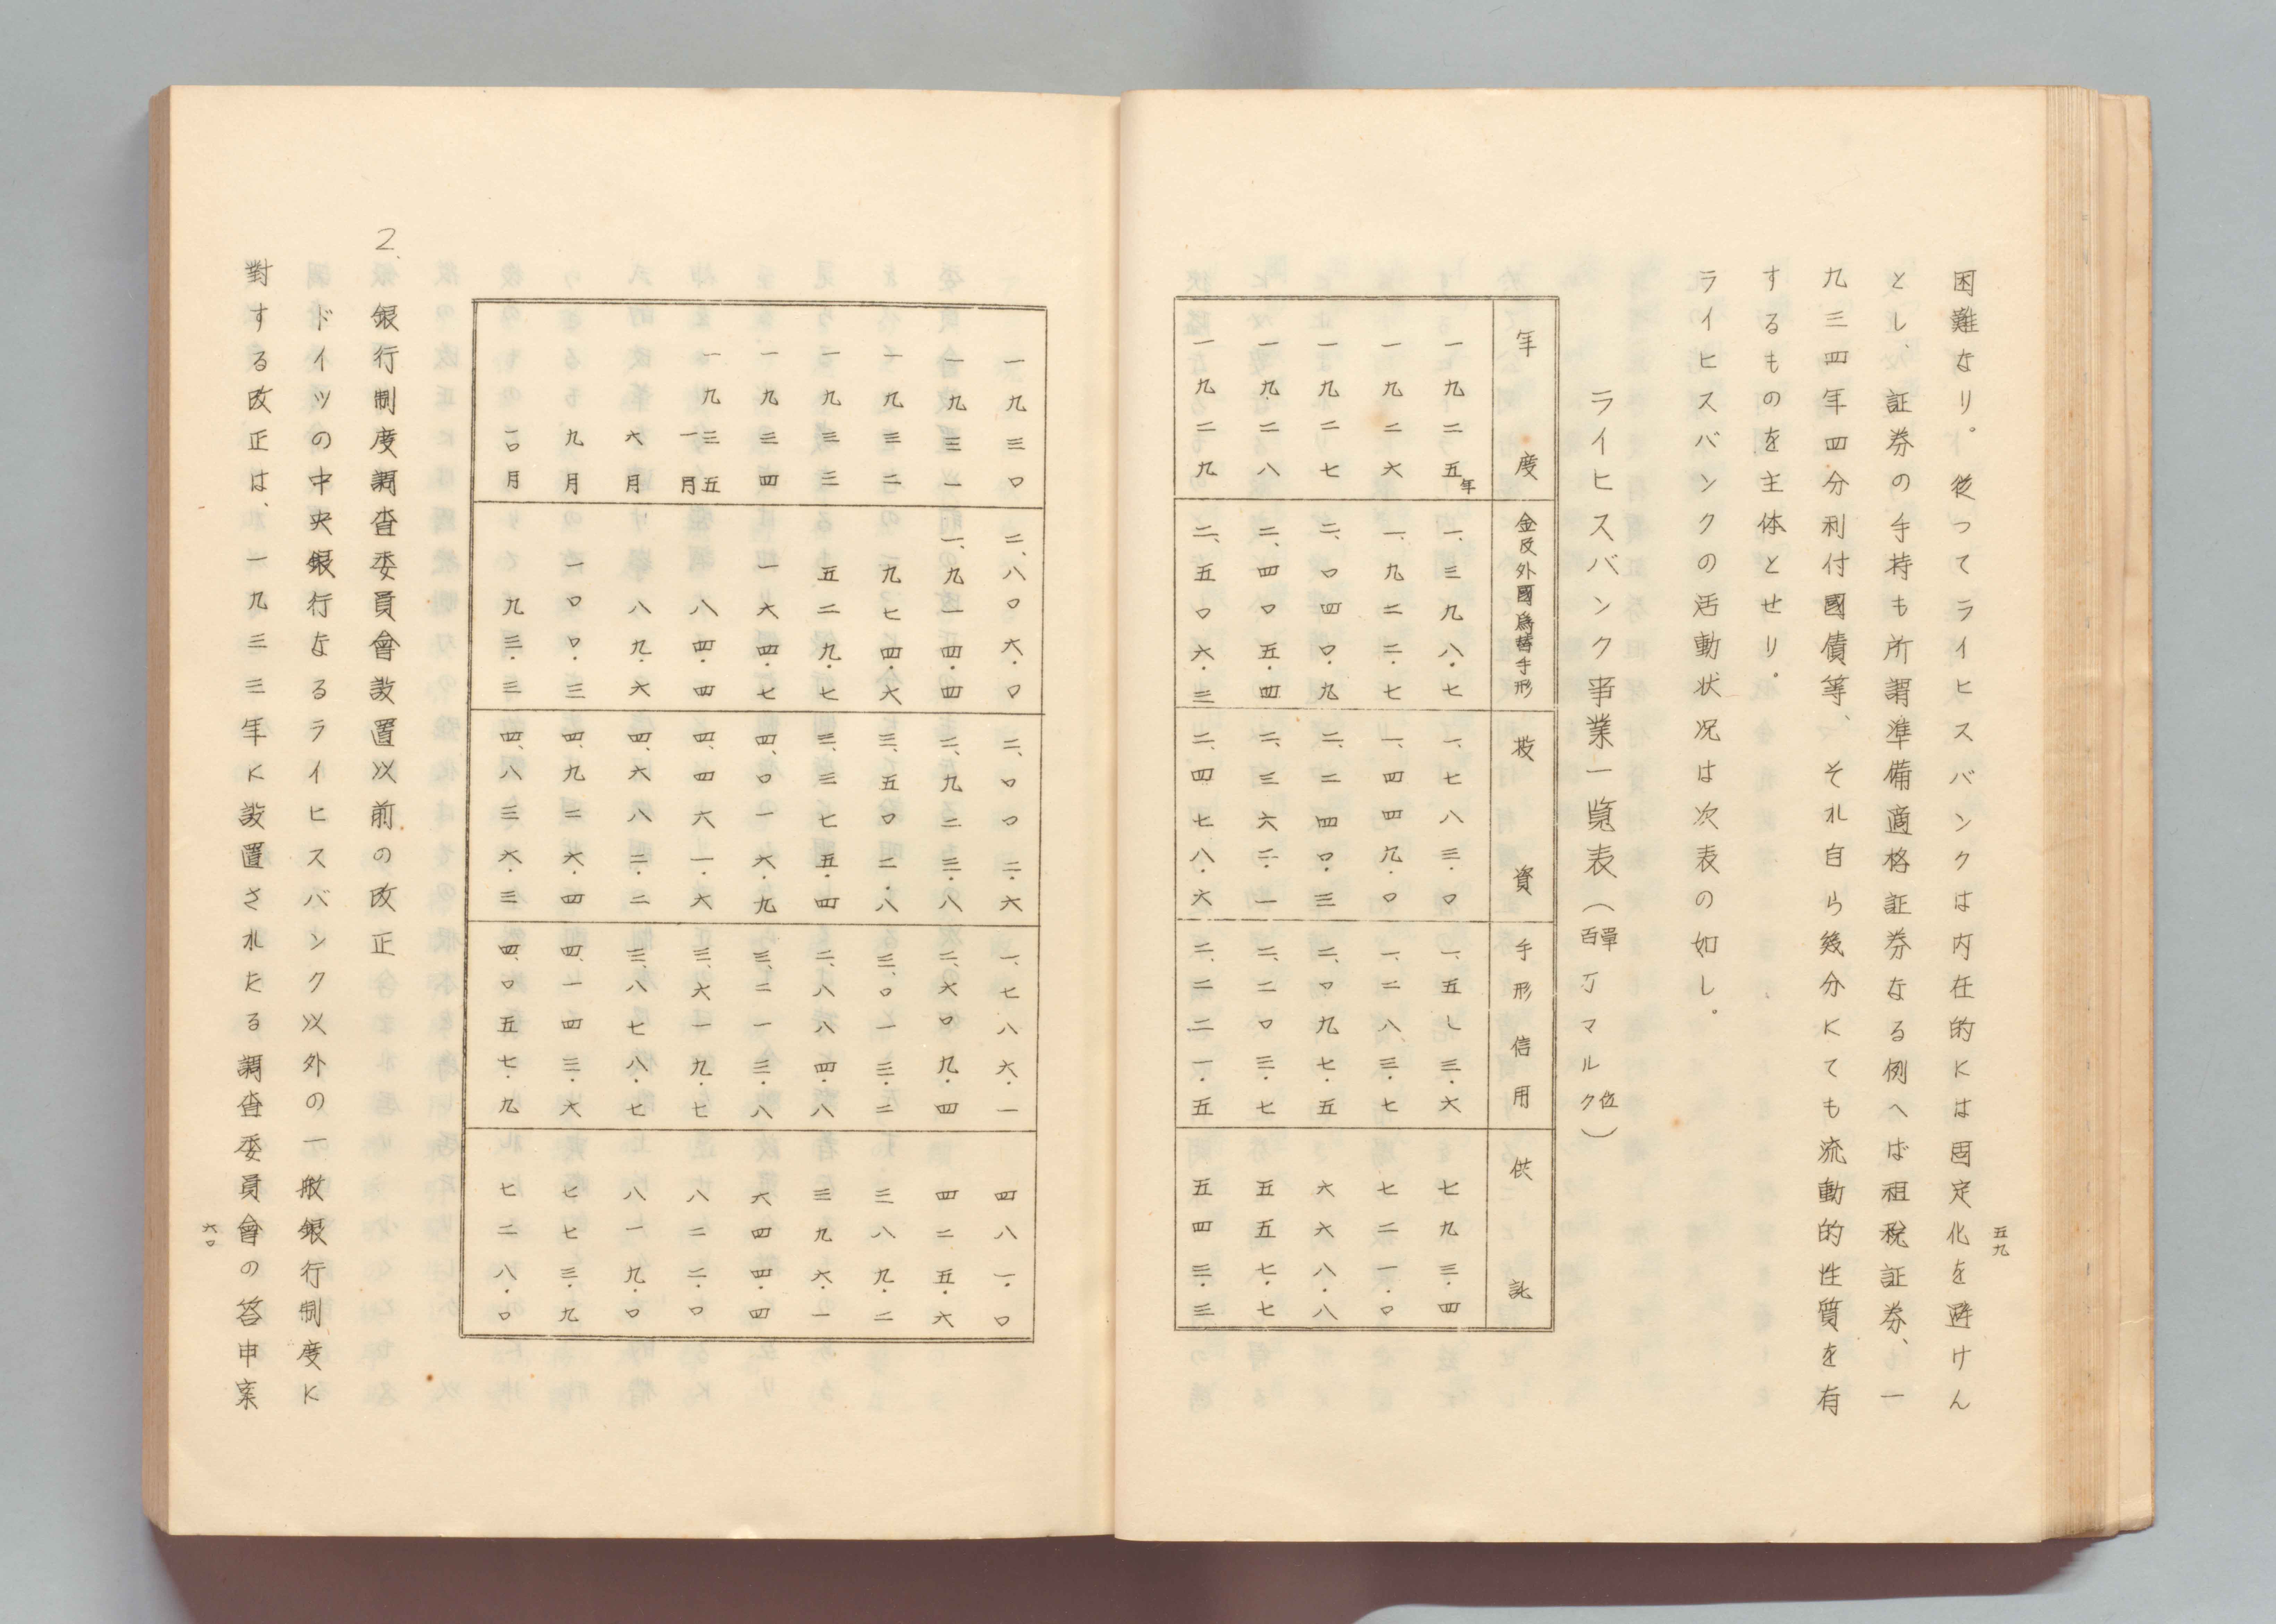 五九
困難なり。従つてライヒスバンクは内在的には固定化を避けん
とし、証券の手持も所謂準備適格証券なる例へば租税証券、一
九三四年四分利付國債等、それ自ら幾分にても流動的性質を有
するものを主体とせり。
ライヒスバンクの活動状况は次表の如し。
ライヒスバンク事業一覧表（單位百万マルク）
年度 金及外國為替手形 投資 手形信用 供託
一九二五年 一、三九八・七 一、七八三・〇 一、五七三・六 七九三・四
一九二六 一、九二二・七 一、四四九・〇 一、二八三・七 七二一・〇
一九二七 二、〇四〇・九 二、二四〇・三 二、〇九七・五 六六八・八
一九二八 二、四〇五・四 二、三六二・一 二、二〇三・七 五五七・七
一九二九 二、五〇六・三 二、四七八・六 二、二二一・五 五四三・三
一九三〇 二、八〇六・〇 二、〇〇二・六 一、七八六・一 四八一・〇
一九三一 一、九一四・四 二、九二三・八 二、六〇九・四 四二五・六
一九三二 九七四・六 三、五〇二・八 三、〇一三・二 三八九・二
一九三三 五二九・七 三、三七五・四 二、八八四・八 三九六・一
一九三四 一六四・七 四、〇一六・九 三、二一三・八 六四四・四
一九三五 一月 八四・四 四、四六一・六 三、六一九・七 八二二・〇
六月 八九・六 四、六八二・二 三、八七八・七 八一九・〇
九月 一〇〇・三 四、九二六・四 四、一四三・六 七七三・九
一〇月 九三・三 四、八三六・三 四、〇五七・九 七二八・〇
2. 銀行制度調査委員會設置以前の改正
ドイツの中央銀行なるライヒスバンク以外の一般銀行制度に
對する改正は、一九三三年に設置されたる調査委員會の答申案
六〇